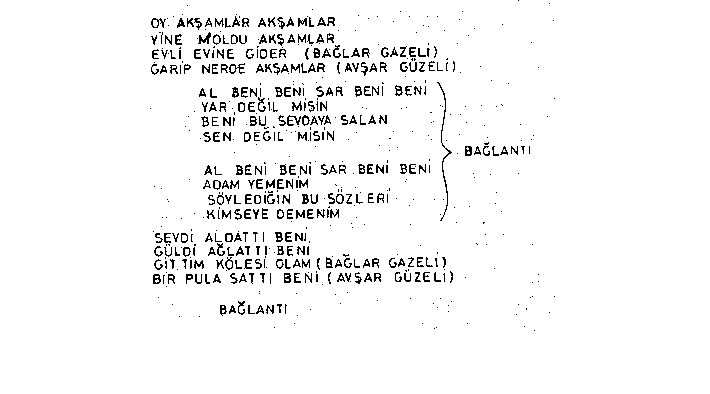 OY AKŞAMLAR AKŞAMLAR
YİNE MOLDU AKŞAMLAR
EVLİ EVİNE GİDER (BAĞLAR GAZELİ)
GARİP NERDE AKŞAMLAR (AVŞAR GÜZELİ)
AL BENİ BENİ SAR BENİ BENİ
YAR DEĞİL MİSİN
BENİ BU SEVDAYA SALAN
SEN DEĞİL MİSİN
BAĞLANTI
AL BENİ BENİ SAR BENİ BENİ
ADAM YEMENİM
SÖYLEDİĞİN BU SÖZLERİ
KİMSEYE DEMENİM
SEVDİ ALDATTI BENİ
GÜLDİ AĞLATTI BENİ
GİTTİM KÖLESİ OLAM (BAĞLAR GAZELİ)
BİR PULA SATTI BENİ (AVŞAR GÜZELİ)
BAĞLANTI